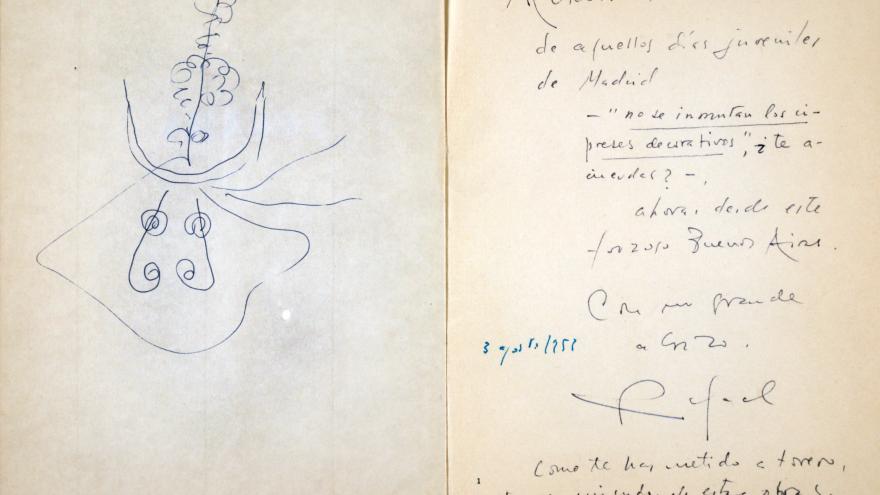 de aquellos días juveniles
de Madrid
- "no se inmutan los ci-
preses decorativos", ¿te a-
cuerdas? -,
ahora, desde este
forzoso Buenos Aires.
Con un grande
abrazo.
3 agosto/953
Rafael
Como te has metido a torero,
de esta obra
1